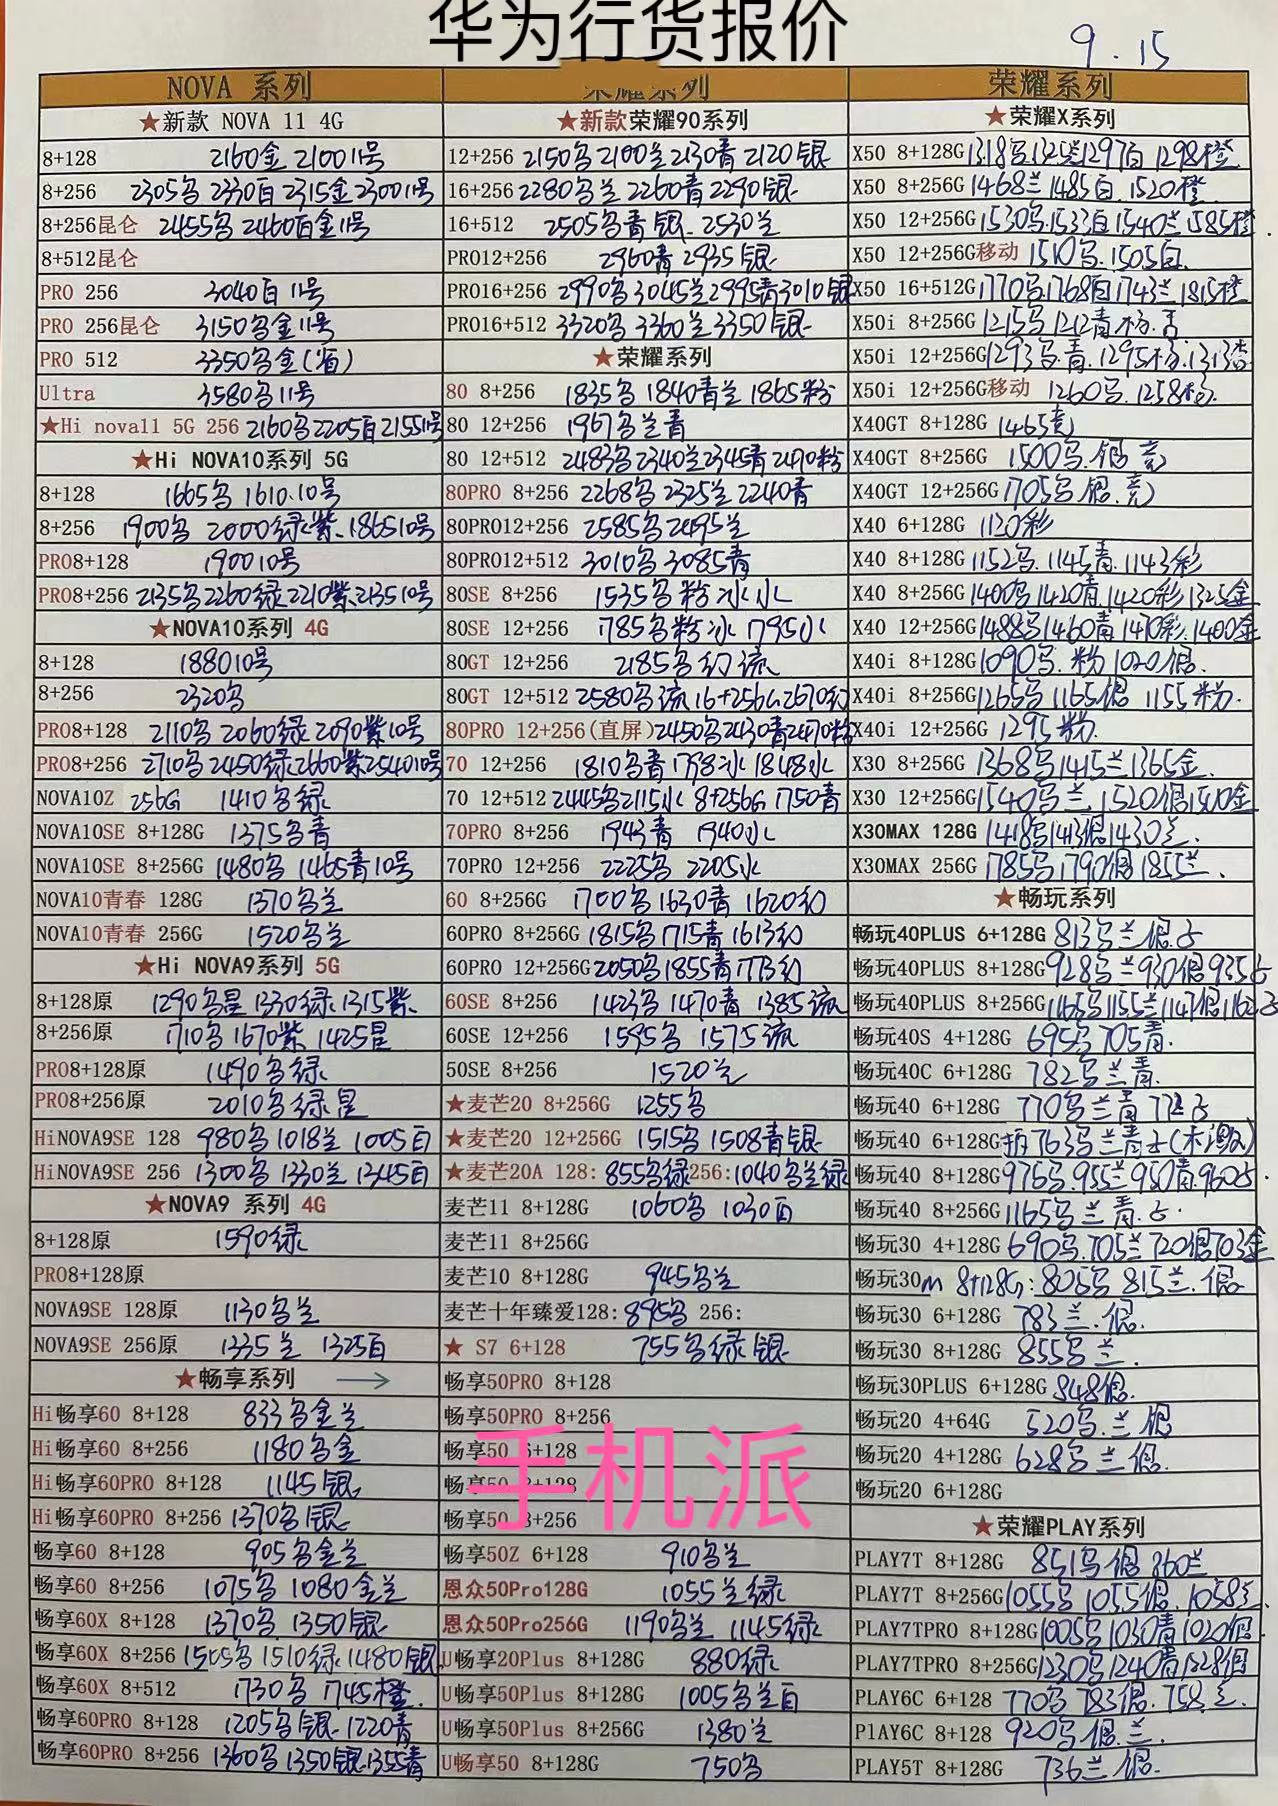 华为行货报价
9.15
NOVA 系列
★新款 NOVA 11 4G
8+128 2160金 2100 11号
8+256 2305乌 2330白 2315金 2300 11号
8+256昆仑 2455乌 2460白金11号
8+512昆仑
PRO 256 3040白 11号
PRO 256昆仑 3150乌金11号
PRO 512 3350乌金(省)
Ultra 3580乌11号
★Hi nova11 5G 256 2160乌2205白2155 11号
★Hi NOVA10系列 5G
8+128 1665乌 1610.10号
8+256 1900乌 2000绿紫.1865 10号
PRO8+128 1900 10号
PRO8+256 2135乌2260绿2210紫2135 10号
★NOVA10系列 4G
8+128 1880 10号
8+256 2320乌
PRO8+128 2110乌 2060绿 2090紫10号
PRO8+256 2710乌2450绿2660紫2540 10号
NOVA10Z 256G 1410乌绿
NOVA10SE 8+128G 1375乌青
NOVA10SE 8+256G 1480乌 1465青10号
NOVA10青春 128G 1370乌兰
NOVA10青春 256G 1520乌兰
★Hi NOVA9系列 5G
8+128原 1290乌星 1330绿 1315紫.
8+256原 1710乌 1670紫 1425星
PRO8+128原 1490乌绿
PRO8+256原 2010乌绿星
HiNOVA9SE 128 980乌 1018兰 1005白
HiNOVA9SE 256 1300乌 1330兰 1345白
★NOVA9 系列 4G
8+128原 1590绿
PRO8+128原
NOVA9SE 128原 1130乌兰
NOVA9SE 256原 1335兰 1325白
★畅享系列 →
Hi畅享60 8+128 833乌金兰
Hi畅享60 8+256 1180乌金
Hi畅享60PRO 8+128 1145银
Hi畅享60PRO 8+256 1370乌银
畅享60 8+128 905乌金兰
畅享60 8+256 1075乌 1080金兰
畅享60X 8+128 1370乌 1350银
畅享60X 8+256 1505乌 1510绿 1480银
畅享60X 8+512 1730乌 1745橙.
畅享60PRO 8+128 1205乌银.1220青
畅享60PRO 8+256 1360乌 1350银1355青
荣耀系列
★新款荣耀90系列
12+256 2150乌2100兰2130青 2120银
16+256 2280乌兰 2260青2290银
16+512 2505乌青银.2530兰
PRO12+256 2960青 2935银
PRO16+256 2990乌3045兰2995青3010银
PRO16+512 3320乌 3360兰3350银
★荣耀系列
80 8+256 1835乌 1840青兰 1865粉
80 12+256 1967乌兰青
80 12+512 2483乌2340兰2345青2470粉
80PRO 8+256 2268乌 2325兰 2240青
80PRO12+256 2585乌2495兰
80PRO12+512 3010乌 3085青
80SE 8+256 1535乌 粉冰水
80SE 12+256 1785乌粉冰 1795水
80GT 12+256 2185乌幻流
80GT 12+512 2580乌流16+256G2670幻
80PRO 12+256(直屏)2450乌2430青2470粉
70 12+256 1810乌青1798冰 1848水
70 12+512 2445乌2115水 8+256G 1750青
70PRO 8+256 1943青 1940水
70PRO 12+256 2225乌 2205水
60 8+256G 1700乌1630青 1620幻
60PRO 8+256G 1815乌1715青1613幻
60PRO 12+256G2050乌1855青1773幻
60SE 8+256 1423乌 1470青 1385流
60SE 12+256 1595乌 1575流
50SE 8+256 1520兰
★麦芒20 8+256G 1255乌
★麦芒20 12+256G 1515乌 1508青银
★麦芒20A 128: 855乌绿256:1040乌兰绿
麦芒11 8+128G 1060乌 1030白
麦芒11 8+256G
麦芒10 8+128G 945乌兰
麦芒十年臻爱128: 895乌 256:
★ S7 6+128 755乌绿银
畅享50PRO 8+128
畅享50PRO 8+256
畅享50 6+128
畅享50 8+128
畅享50 8+256
手机派
畅享50Z 6+128 910乌兰
恩众50Pro128G 1055兰绿
恩众50Pro256G 1190乌兰 1145绿
U畅享20Plus 8+128G 880绿
U畅享50Plus 8+128G 1005乌兰白
U畅享50Plus 8+256G 1380兰
U畅享50 8+128G 750乌
荣耀系列
★荣耀X系列
X50 8+128G1318乌1325兰1297白 1298橙
X50 8+256G 1468兰 1485白.1520橙
X50 12+256G1530乌.1533白1540兰1585橙
X50 12+256G移动 1510乌.1505白.
X50 16+512G1770乌1768白1743兰1815橙
X50i 8+256G 1215乌 1212青粉.
X50i 12+256G1293乌.青.1295粉.1313
X50i 12+256G移动 1260乌.1258粉.
X40GT 8+128G 1465竞
X40GT 8+256G 1500乌.银 竞
X40GT 12+256G1705乌银.竞
X40 6+128G 1120彩
X40 8+128G 1152乌.1145青.1143彩
X40 8+256G1400乌1420青.1420彩1325金
X40 12+256G1488乌1460青1410彩.1400金
X40i 8+128G1090乌.粉 1020银.
X40i 8+256G1265乌 1165银 1155粉.
X40i 12+256G 1295粉.
X30 8+256G 1368乌1415兰1365金.
X30 12+256G1540乌兰,1520银1500金
X30MAX 128G 1418乌1413银1430兰.
X30MAX 256G 1785乌1790银1855兰.
★畅玩系列
畅玩40PLUS 6+128G 813乌兰银.
畅玩40PLUS 8+128G928乌兰930银935
畅玩40PLUS 8+256G1165乌1155兰1147银1162
畅玩40S 4+128G 695乌705青.
畅玩40C 6+128G 782乌兰青.
畅玩40 6+128G 770乌兰青 772
畅玩40 6+128G 拆763乌兰青
畅玩40 8+128G976乌.955兰950青.960
畅玩40 8+256G1165乌兰青.
畅玩30 4+128G 690乌.705兰720银703金
畅玩30m 8+128G:805乌 815兰.银.
畅玩30 6+128G 783兰.银.
畅玩30 8+128G 855乌兰.
畅玩30PLUS 6+128G 848银.
畅玩20 4+64G 520乌.兰银
畅玩20 4+128G 628乌兰银.
畅玩20 6+128G
★荣耀PLAY系列
PLAY7T 8+128G 851乌银 860兰
PLAY7T 8+256G1055乌 1055银.1058兰.
PLAY7TPRO 8+128G1005乌1030青1020银
PLAY7TPRO 8+256G1230乌1240青1228银
PLAY6C 6+128 770乌 783银.758兰.
PlAY6C 8+128 920乌银.兰.
PLAY5T 8+128G 736兰银.